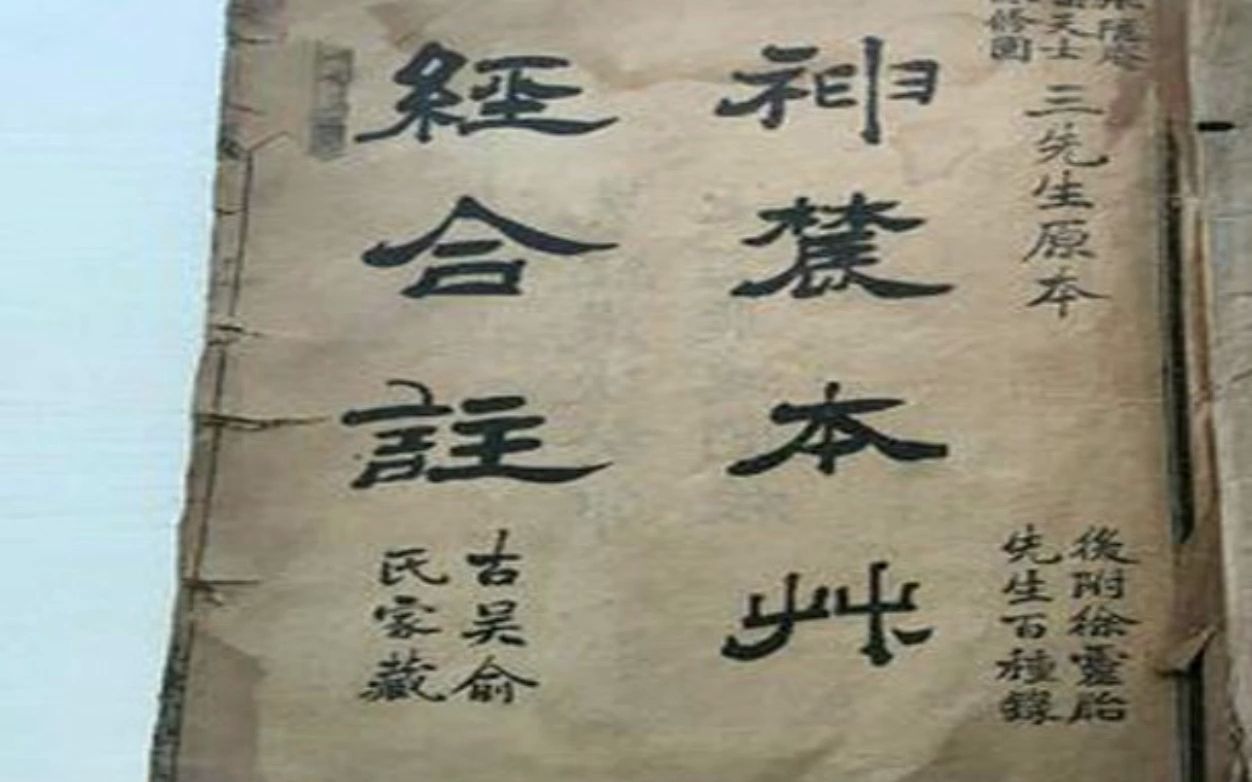 隱庵
天士
修園
三先生原本
後附徐靈胎
先生百種錄
神農本艸
經合註
古吳俞
氏家藏